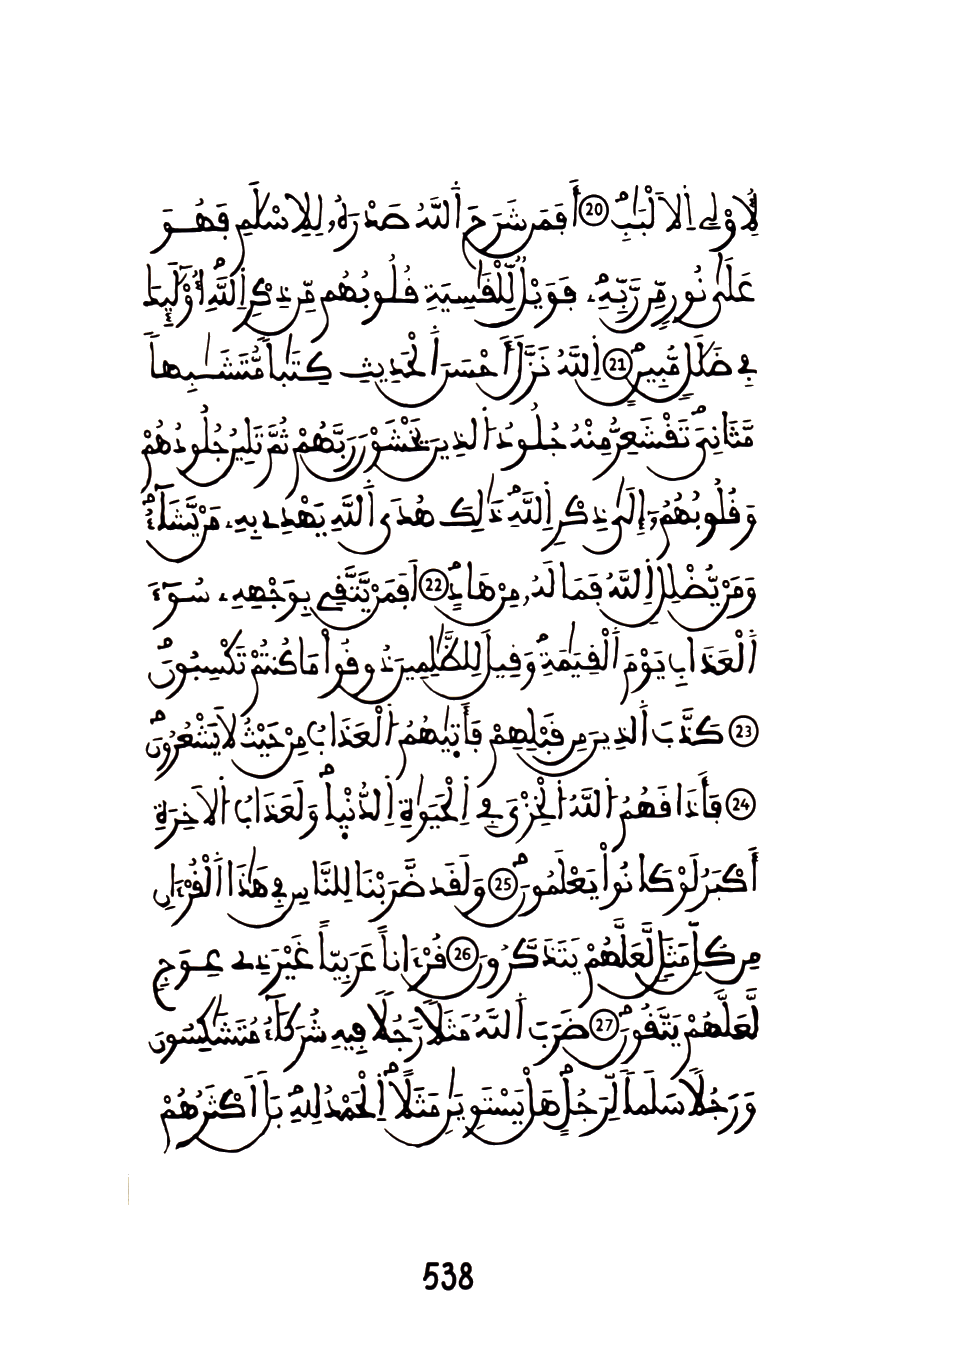 لِأُوْلِے اِ۬لَالْبَٰبِۖ 20 أَفَمَن شَرَحَ اَ۬للَّهُ صَدْرَهُۥ لِلِاسْلَٰمِ فَهُوَ
عَلَىٰ نُورٖ مِّن رَّبِّهِۦۖ فَوَيْلٞ لِّلْقَٰسِيَةِ قُلُوبُهُم مِّن ذِكْرِ اِ۬للَّهِۖ أُوْلَٰٓئِكَ
فِے ضَلَٰلٖ مُّبِينٍۖ 21 اِ۬للَّهُ نَزَّلَ أَحْسَنَ اَ۬لْحَدِيثِ كِتَٰباٗ مُّتَشَٰبِهاٗ
مَّثَانِيَۖ تَقْشَعِرُّ مِنْهُ جُلُودُ اُ۬لذِينَ يَخْشَوْنَ رَبَّهُمْ ثُمَّ تَلِينُ جُلُودُهُمْ
وَقُلُوبُهُمُۥٓ إِلَىٰ ذِكْرِ اِ۬للَّهِۖ ذَٰلِكَ هُدَى اَ۬للَّهِ يَهْدِے بِهِۦ مَنْ يَّشَآءُۖ
وَمَنْ يُّضْلِلِ اِ۬للَّهُ فَمَا لَهُۥ مِنْ هَادٍۖ 22 اَفَمَنْ يَّتَّقِے بِوَجْهِهِۦ سُوٓءَ
اَ۬لْعَذَابِ يَوْمَ اَ۬لْقِيَٰمَةِۖ وَقِيلَ لِلظَّٰلِمِينَ ذُوقُواْ مَا كُنتُمْ تَكْسِبُونَۖ
23 كَذَّبَ اَ۬لذِينَ مِن قَبْلِهِمْ فَأَت۪يٰهُمُ اُ۬لْعَذَابُ مِنْ حَيْثُ لَا يَشْعُرُونَۖ
24 فَأَذَاقَهُمُ اُ۬للَّهُ اُ۬لْخِزْيَ فِے اِ۬لْحَيَوٰةِ اِ۬لدُّنْي۪اۖ وَلَعَذَابُ اُ۬لَاخِرَةِ
أَكْبَرُ لَوْ كَانُواْ يَعْلَمُونَۖ 25 وَلَقَد ضَّرَبْنَا لِلنَّاسِ فِے هَٰذَا اَ۬لْقُرْءَانِ
مِن كُلِّ مَثَلٖ لَّعَلَّهُمْ يَتَذَكَّرُونَ 26 قُرْءَاناً عَرَبِيّاً غَيْرَ ذِے عِوَجٖ
لَّعَلَّهُمْ يَتَّقُونَۖ 27 ضَرَبَ اَ۬للَّهُ مَثَلاٗ رَّجُلاٗ فِيهِ شُرَكَآءُ مُتَشَٰكِسُونَ
وَرَجُلاٗ سَلَماٗ لِّرَجُلٍۖ هَلْ يَسْتَوِيَٰنِ مَثَلاًۖ اِ۬لْحَمْدُ لِلهِۖ بَلَ اَكْثَرُهُمْ
538